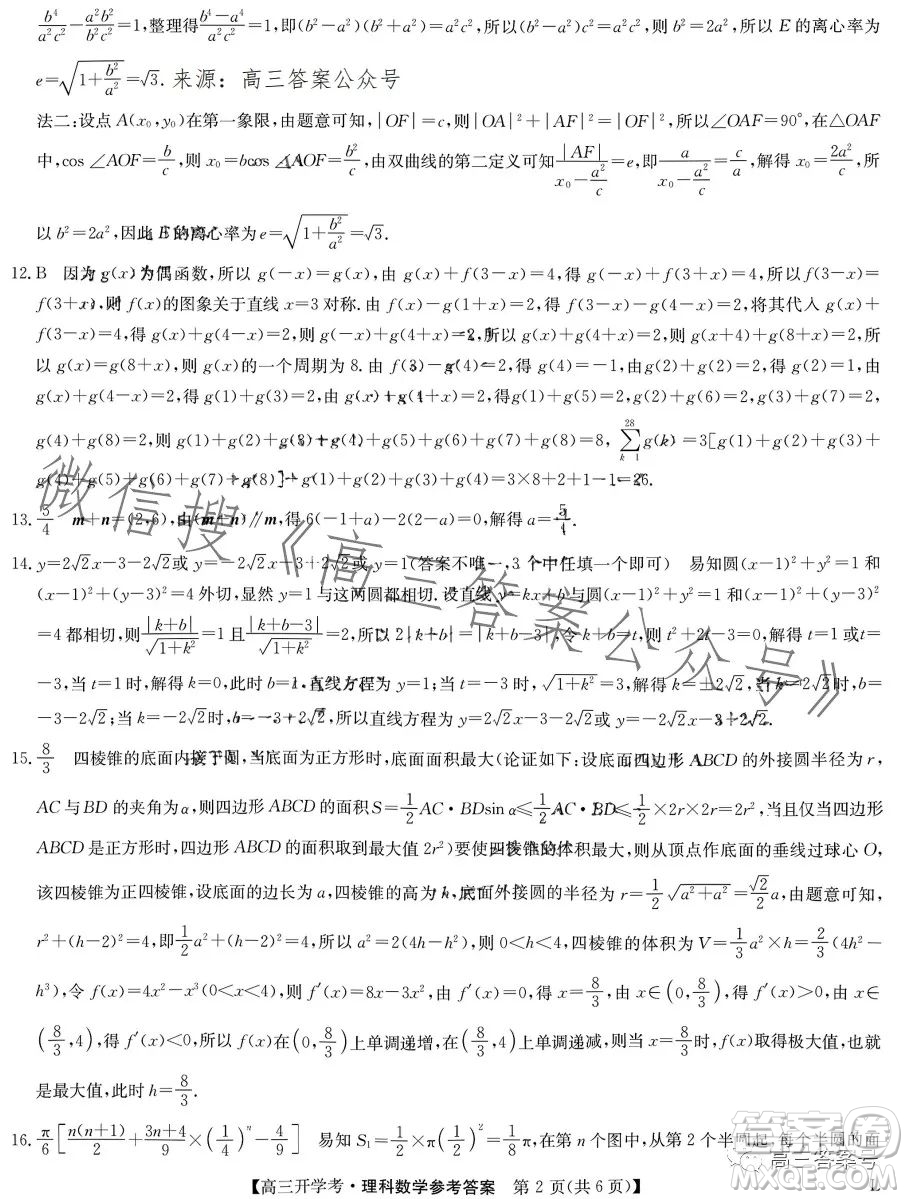 b⁴/(a²c²) − a²b²/(b²c²) = 1,整理得(b⁴−a⁴)/(a²c²)=1,即(b²−a²)(b²+a²)=a²c²,所以(b²−a²)c²=a²c²,所以b²−a²=a²,即b²=2a²,所以E的离心率为
e=√(1+b²/a²)=√3. 来源:高三答案公众号
法二:设点A(x₀,y₀)在第一象限,由题意可知,|OF|=c,则|OA|²+|AF|²=|OF|²,所以∠OAF=90°,在△OAF
中,cos∠AOF=b/c,则x₀=bcos∠AOF=b²/c,由双曲线的第二定义可知|AF|/(x₀−a²/c)=e,即a/(x₀−a²/c)=c/a,解得x₀=2a²/c,所
以b²=2a²,因此E的离心率为e=√(1+b²/a²)=√3.
12.B 因为g(x)为偶函数,所以g(−x)=g(x),由g(x)+f(3−x)=4,得g(−x)+f(3+x)=4,所以f(3−x)=
f(3+x),则f(x)的图象关于直线x=3对称.由f(x)−g(1+x)=2,得f(3−x)−g(4−x)=2,将其代入g(x)+
f(3−x)=4,得g(x)+g(4−x)=2,则g(−x)+g(4+x)=2,所以g(x)+g(4+x)=2,则g(x+4)+g(8+x)=2,所
以g(x)=g(8+x),则g(x)的一个周期为8.由g(x)+g(4−x)=2,得g(2)+g(2)=2,得g(2)=1,由
g(x)+g(4−x)=2,得g(1)+g(3)=2,由g(x)+g(4+x)=2,得g(1)+g(5)=2,g(2)+g(6)=2,g(3)+g(7)=2,
g(4)+g(8)=2,则g(1)+g(2)+g(3)+g(4)+g(5)+g(6)+g(7)+g(8)=8,∑g(k)=3[g(1)+g(2)+g(3)+
g(4)+g(5)+g(6)+g(7)+g(8)]+g(1)+g(2)+g(3)+g(4)=3×8+2+1−1=26.
13. m+n=(2,6),由(m+n)∥m,得6(−1+a)−2(2−a)=0,解得a=5/4.
14.y=2√2x−3−2√2或y=−2√2x−3+2√2或y=1(答案不唯一,3个中任填一个即可) 易知圆(x−1)²+y²=1和
(x−1)²+(y−3)²=4外切,显然y=1与这两圆都相切.设直线y=kx+b与圆(x−1)²+y²=1和(x−1)²+(y−3)²
=4都相切,则|k+b|/√(1+k²)=1且|k+b−3|/√(1+k²)=2,所以2|k+b|=|k+b−3|,令k+b=t,则t²+2t−3=0,解得t=1或t=
−3,当t=1时,解得k=0,此时b=1,直线方程为y=1;当t=−3时,√(1+k²)=3,解得k=±2√2,当k=2√2时,b=
−3−2√2;当k=−2√2时,b=−3+2√2,所以直线方程为y=2√2x−3−2√2或y=−2√2x−3+2√2.
15.8/3 四棱锥的底面内接于圆,当底面为正方形时,底面面积最大(论证如下:设底面四边形ABCD的外接圆半径为r,
AC与BD的夹角为α,则四边形ABCD的面积S=1/2AC·BDsinα≤1/2AC·BD≤1/2×2r×2r=2r²,当且仅当四边形
ABCD是正方形时,四边形ABCD的面积取到最大值2r²)要使四棱锥的体积最大,则从顶点作底面的垂线过球心O,
该四棱锥为正四棱锥,设底面的边长为a,四棱锥的高为h,底面外接圆的半径为r=1/2√(a²+a²)=√2/2a,由题意可知,
r²+(h−2)²=4,即1/2a²+(h−2)²=4,所以a²=2(4h−h²),则0<h<4,四棱锥的体积为V=1/3a²×h=2/3(4h²−
h³),令f(x)=4x²−x³(0<x<4),则f′(x)=8x−3x²,由f′(x)=0,得x=8/3,由x∈(0,8/3),得f′(x)>0,由x∈
(8/3,4),得f′(x)<0,所以f(x)在(0,8/3)上单调递增,在(8/3,4)上单调递减,则当x=8/3时,f(x)取得极大值,也就
是最大值,此时h=8/3.
16.π/6[n(n+1)/2+(3n+4)/9×(1/4)ⁿ−4/9] 易知S₁=1/2×π(1/2)²=1/8π,在第n个图中,从第2个半圆起,每个半圆的面
【高三开学考·理科数学参考答案 第2页(共6页)】 L
微信搜《高三答案公众号》
高三答案号
答案圈